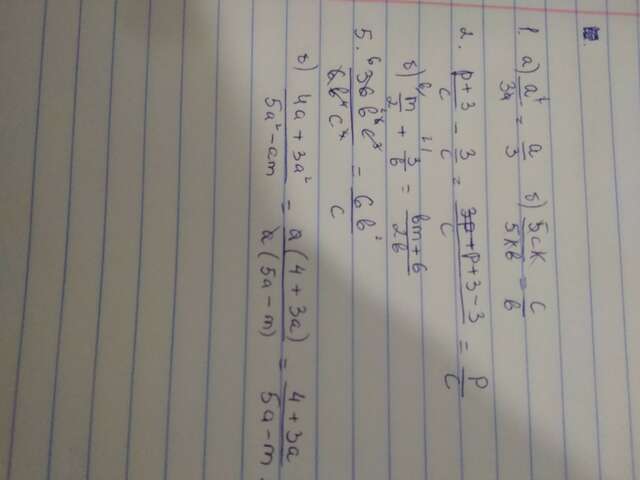 1. а) a²/3a = a/3 б) 5cк/5кb = c/b
2. p+3/c - 3/c = p+3-3/c = p/c
б) m/2 + 3/b = bm+6/2b
5. 36b⁶c³/6b⁴c⁴ = 6b²/c
в) 4a+3a²/5a²-am = a(4+3a)/a(5a-m) = 4+3a/5a-m.